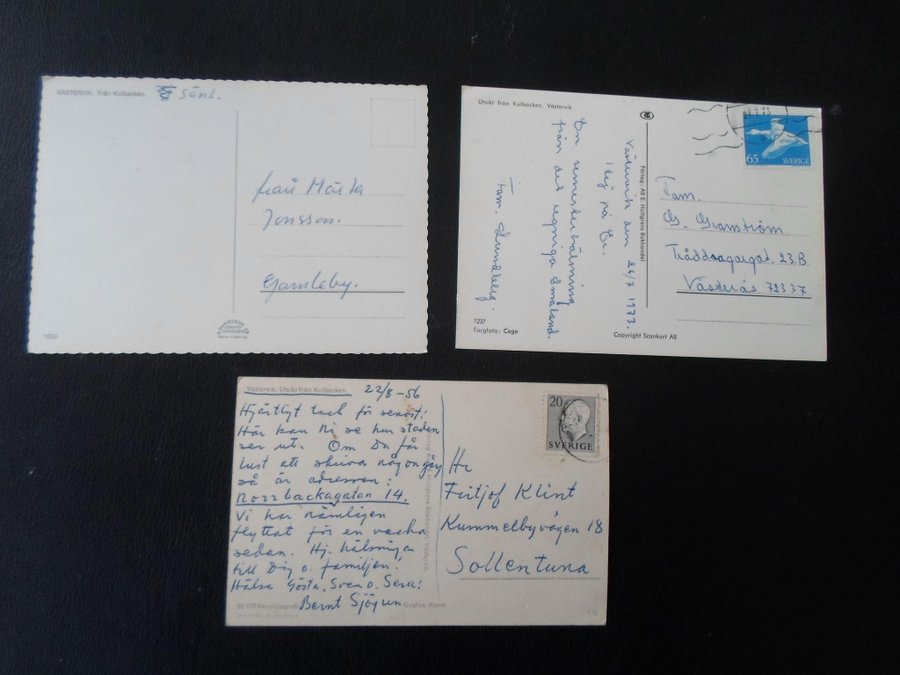 VÄSTERVIK. Från Kulbacken.
Sänt.
fru Märta
Jonsson.
Gamleby.
Utsikt från Kulbacken, Västervik
Västervik den 26/7 1973.
Hej på Er.
En semesterhälsning
från det regniga Småland.
Fam. Lundberg.
1237
Färgfoto: Cege
Förlag: AB E. Hultgrens Bokhandel
Copyright Scankort AB
65 SVERIGE
Fam.
G. Granström
Tråddragargat. 23B
Västerås 72337
Västervik. Utsikt från Kulbacken.
22/8-56
Hjärtligt tack för senast!
Här kan Ni se hur staden
ser ut. Om Du får
lust att skriva någon gång
så är adressen:
Norrbackagatan 14.
Vi har nämligen
flyttat för en vecka
sedan. Hj. hälsningar
till Dig o. familjen.
Hälsa Gösta, Sven o.
Bernt Sjögren
20
SVERIGE
Hr
Fritjof Klint
Kummelbyvägen 18
Sollentuna